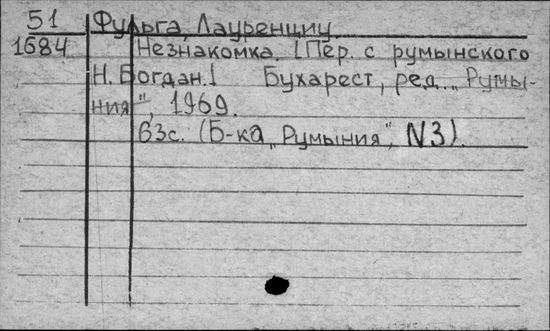 51 Фульга, Лауренциу.
1684 Незнакомка. [Пер. с румынского
Н. Богдан.] Бухарест, ред. „Румы-
ния", 1969.
63с. (Б-ка „Румыния", N3).